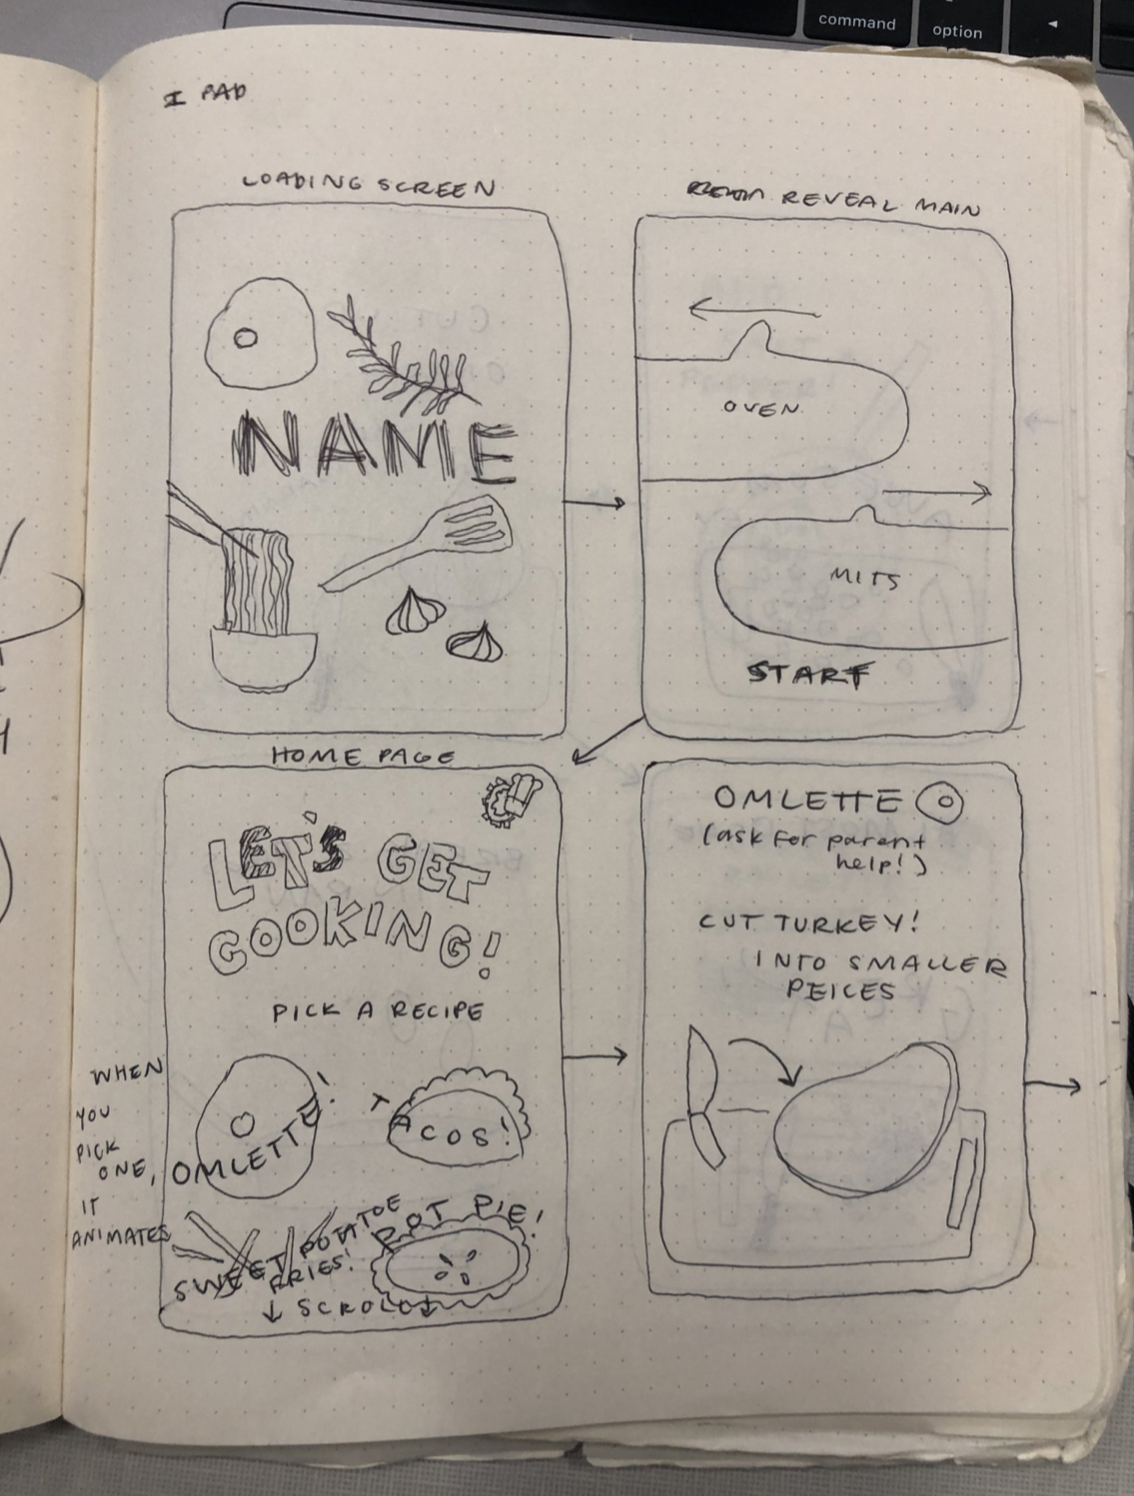 command
option
I PAD
LOADING SCREEN
REVEAL MAIN
NAME
OVEN
MITS
START
HOME PAGE
LET'S GET
COOKING!
PICK A RECIPE
WHEN
YOU
PICK
ONE,
IT
ANIMATES
OMLETTE!
TACOS!
SWEET POTATOE
FRIES!
POT PIE!
↓ SCROLL ↓
OMLETTE
(ask for parent
help!)
CUT TURKEY!
INTO SMALLER
PEICES